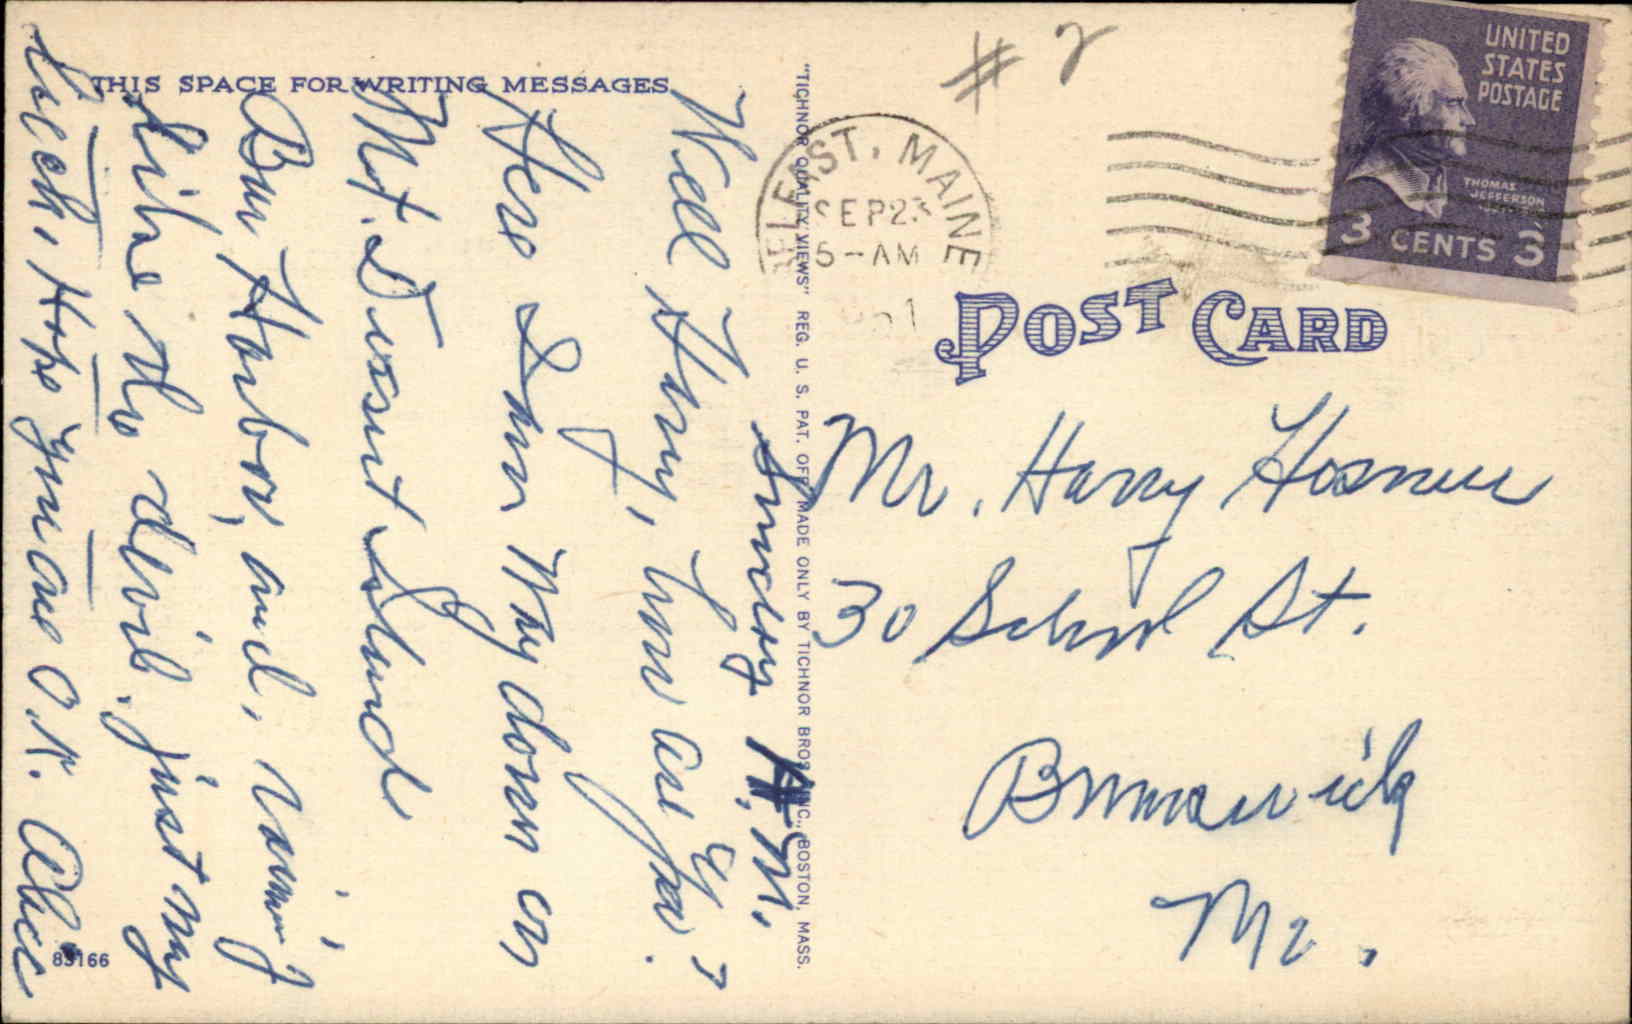 THIS SPACE FOR WRITING MESSAGES
Sunday A.M.
Well Harry, how are you?
Here I am way down on
Mt. Desert Island
Bar Harbor, and, raining
like the devil. just my
luck, Hope you are O.K. Alice
83166
"TICHNOR QUALITY VIEWS" REG. U. S. PAT. OFF. MADE ONLY BY TICHNOR BROS. INC., BOSTON, MASS.
# 2
BELFAST, MAINE
SEP 23
5-AM
UNITED
STATES
POSTAGE
THOMAS
JEFFERSON
3 CENTS 3
POST CARD
Mr. Harry Hosmer
30 School St.
Brunswick
Me.